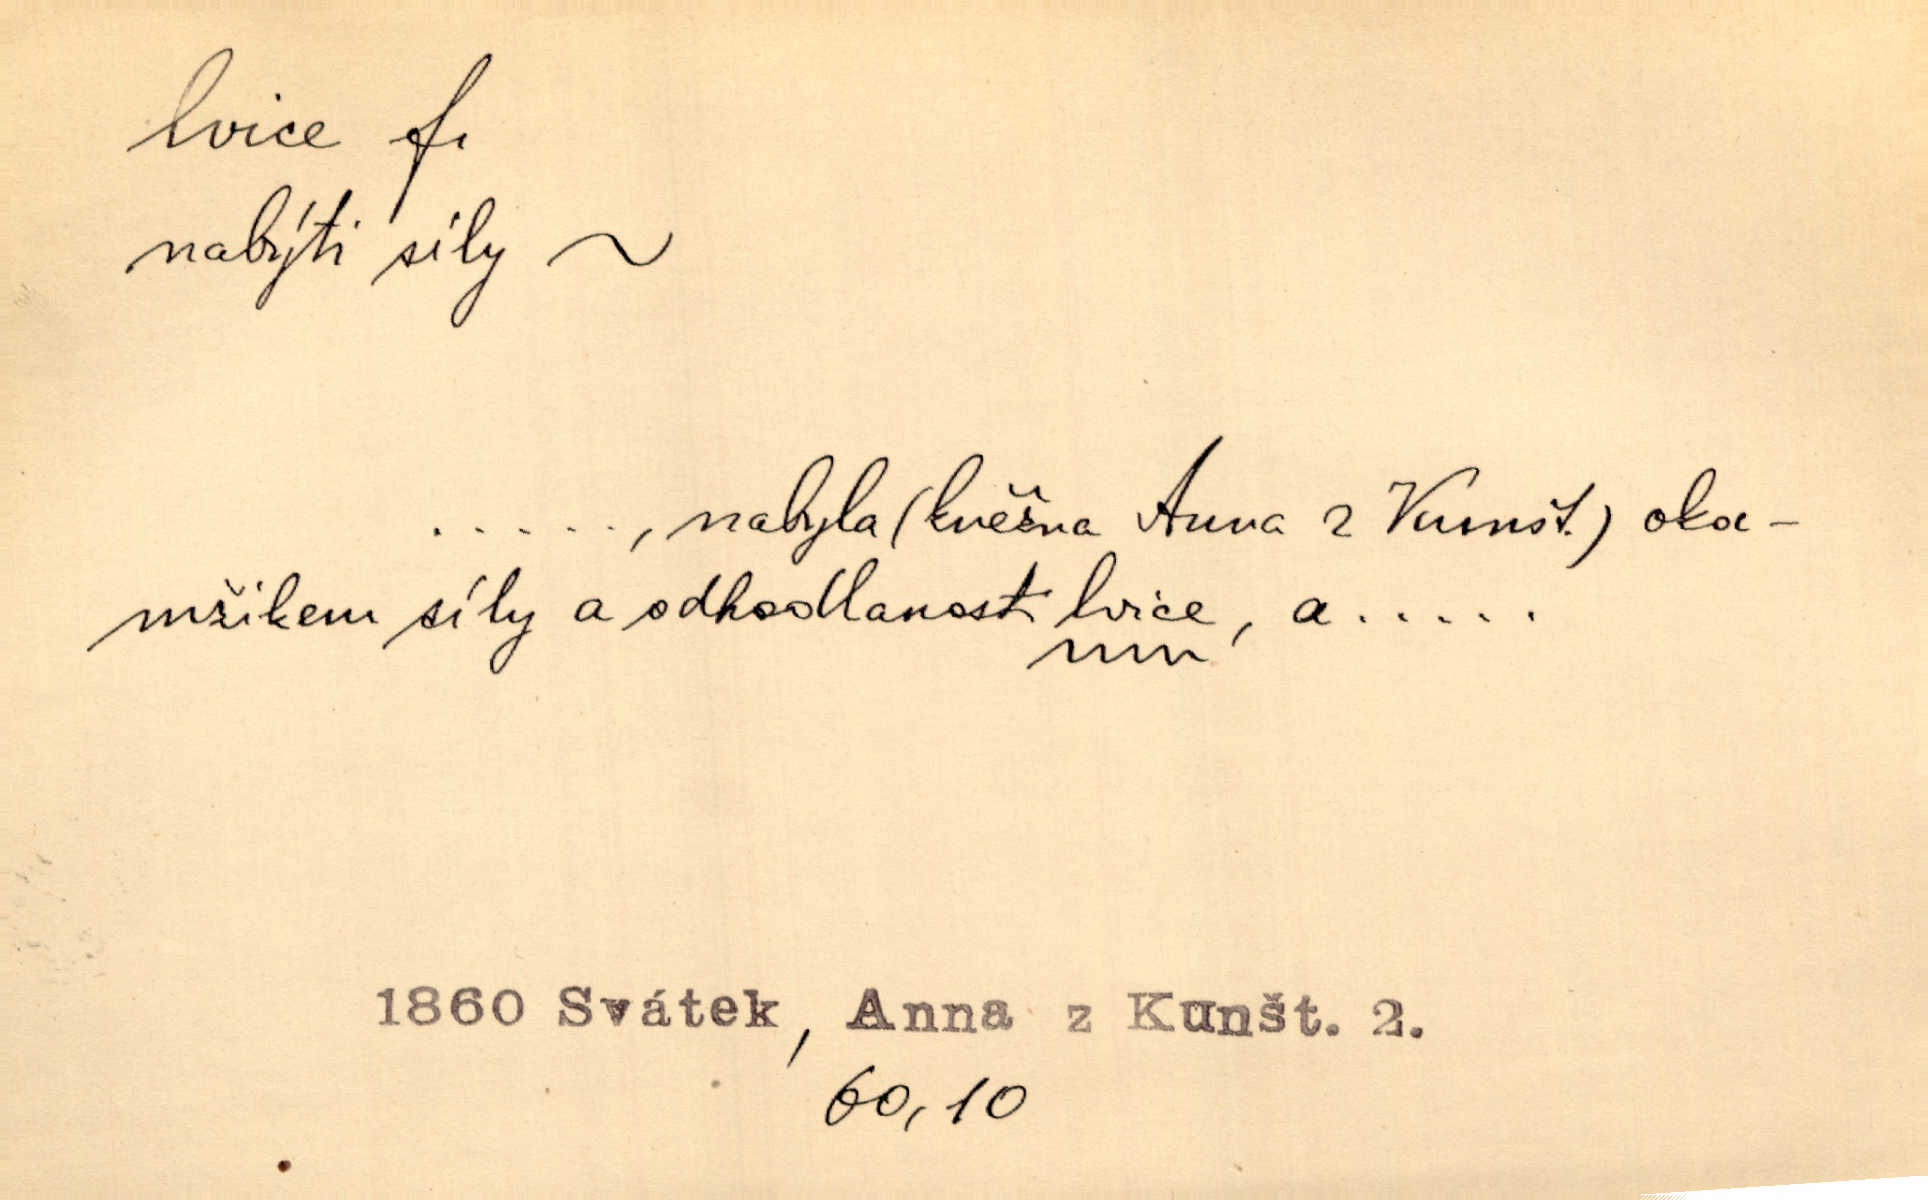 lvice f.
nabýti síly ~
. . . . . ., nabyla (kněžna Anna z Kunšt.) oka-
mžikem síly a odhodlanosti lvice, a . . . . .
1860 Svátek, Anna z Kunšt. 2.
60, 10